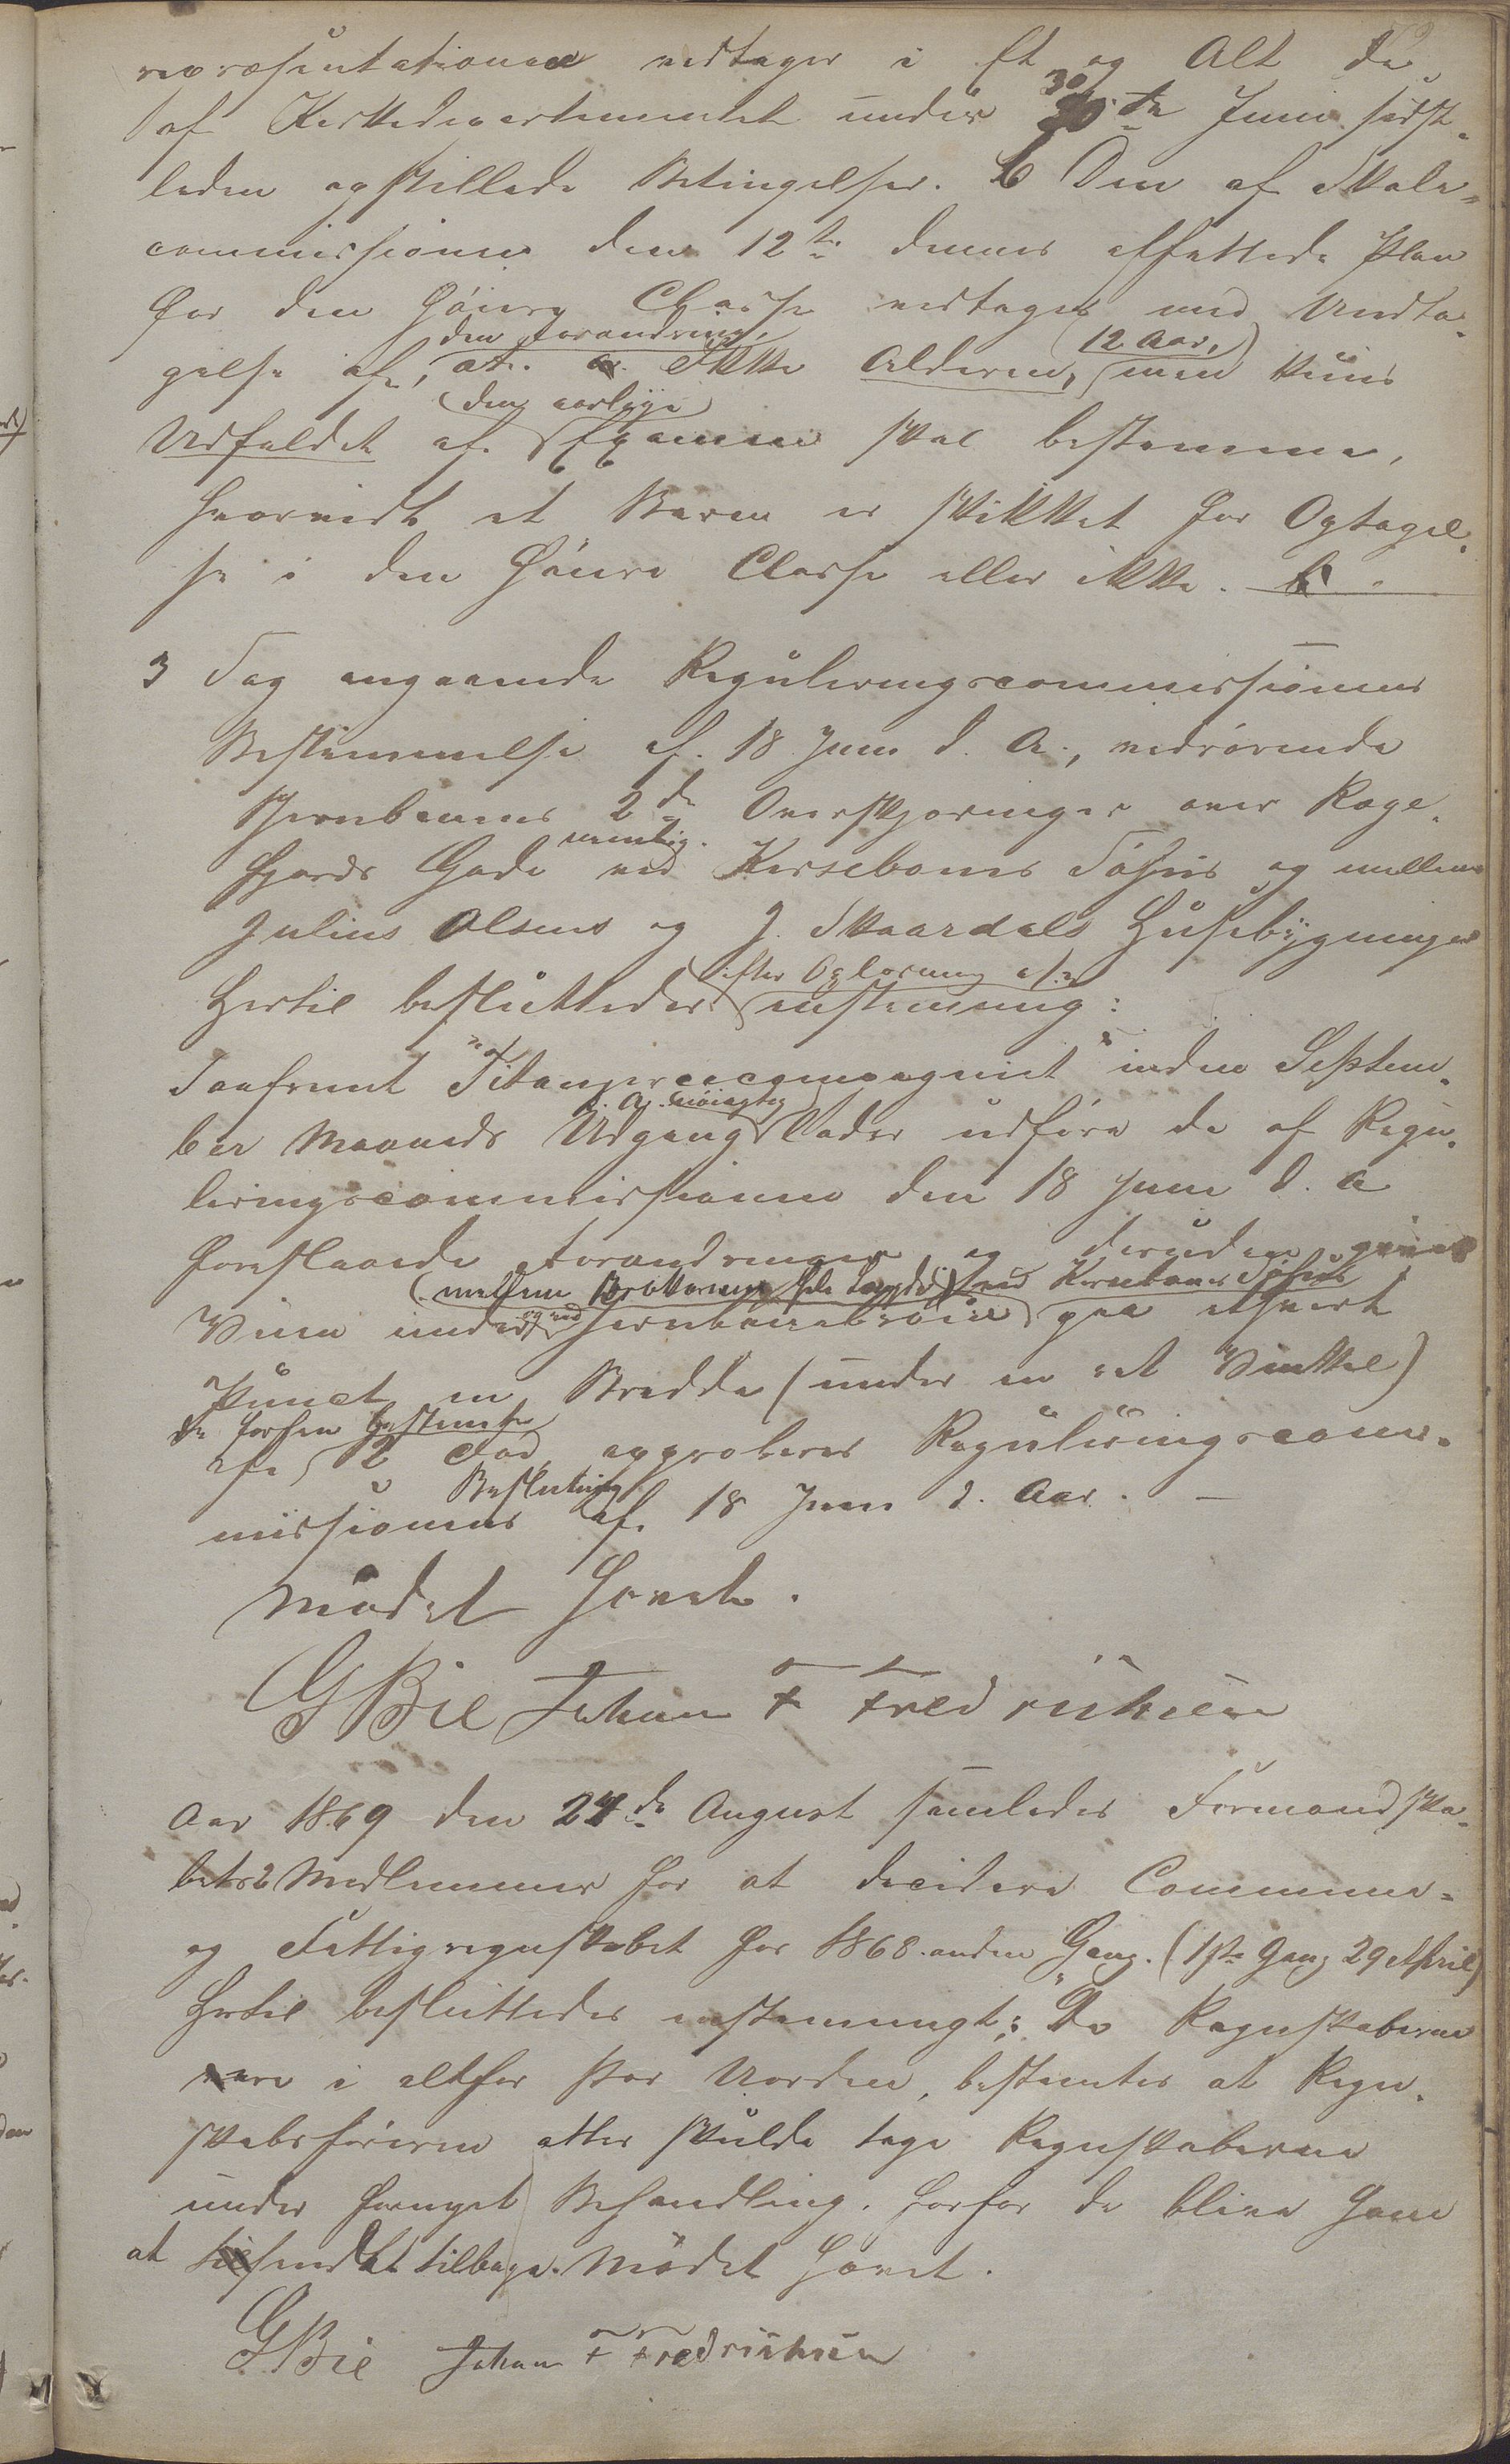 repræsentationen vedtager i Et og Alt de
af Kirkedepartementet under 30te Juni sidst-
leden opstillede Betingelser. b Den af Skole-
commissionen den 12te dennes affattede Plan
for den høiere Classe vedtages med Undta-
gelse af, den Forandring, at ikke Alderen, (12 Aar,) men kuns
Udfaldet af (den aarlige) Examen skal bestemme,
hvorvidt et Barn er skikket for Optagel-
se i den høiere Classe eller ikke.
3 Sag angaaende Reguleringscommissionens
Bestemmelse af 18 Juni d. A., vedrørende
Jernbanens 2de Overskjæringer over Rege-
fjords Gade nemlig ved Kerseboms Søhus og mellem
Julius Olsens og J. Skaardals Husebygninger
Hertil besluttedes (efter Oplæsning af) enstemmig:
Saafremt "Titanjerncompagniet" inden Septem-
ber Maaneds Udgang d. A. nøiagtig lader udføre de af Regu-
leringscommissionen den 18 Juni d. A
foreslaaede Forandringer og desuden giver
Veien under (mellem ved Kerseboms Søhus og ved Jernbanebroen paa ethvert
Punct en Bredde (under en ret Vinkel)
af de forhen bestemte 2 Fod, approberes Reguleringscom-
missionens Beslutning af 18 Juni d. Aar. –
Mødet hævet.
G Bie Johan F Fredriksen
Aar 1869 den 24de August samledes Formandska-
bets 2 Medlemmer for at decidere Commune-
og Fattigregnskabet for 1868 anden Gang. (1ste Gang 29 April)
Hertil besluttedes enstemmigt: "Da Regnskaberne
vare i altfor stor Uorden, bestemtes at Regn-
skabsføreren atter skulde tage Regnskaberne
under fornyet Behandling, hvorfor de blive ham
at sendt tilbage. Mødet hævet.
G Bie Johan F Fredriksen